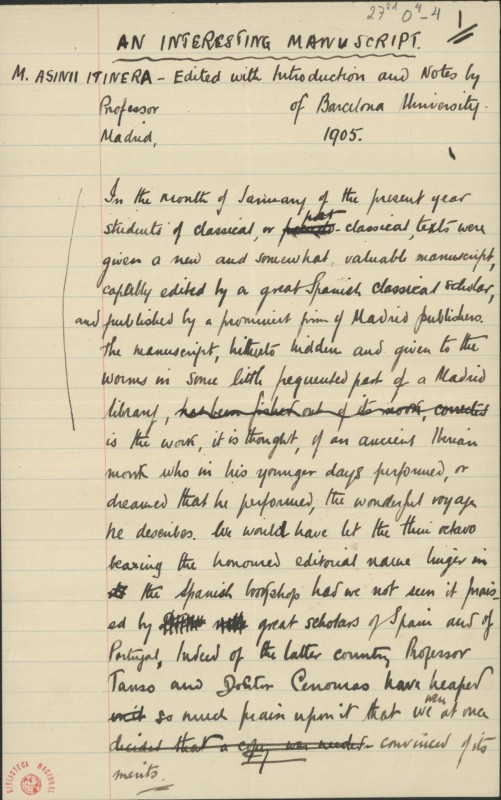 27²¹ 0⁴-4
1
AN INTERESTING MANUSCRIPT.
M. ASINII ITINERA – Edited with Introduction and Notes by
Professor of Barcelona University.
Madrid, 1905.
In the month of January of the present year
students of classical, or post-classical, texts were
given a new and somewhat valuable manuscript,
captibly edited by a great Spanish classical scholar,
and published by a prominent firm of Madrid publishers.
The manuscript, hitherto hidden and given to the
worms in some little frequented part of a Madrid
library, has been fished out of its nook, corrected
is the work, it is thought, of an ancient Iberian
monk who in his younger days performed, or
dreamed that he performed, the wonderful voyage
he describes. We would have let the thin octavo
bearing the honoured editorial name linger in
the Spanish bookshop had we not seen it prais-
ed by great scholars of Spain and of
Portugal, Indeed of the latter country Professor
Tanso and Doktor Cenouras have heaped
so much praise upon it that we were at once
decided that a copy was needed – convinced of its
merits.
BIBLIOTECA NACIONAL